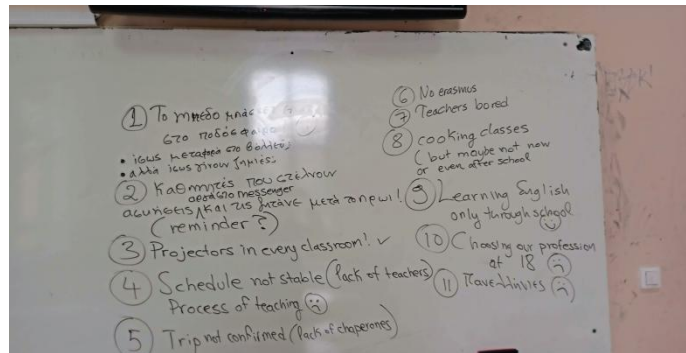 ① Το γηπέδο μπάσκετ
στο ποδόσφαιρο
• ίσως μεταφορά στο βόλλεϋ;
• αλλά ίσως γίνουν ζημιές.
② Καθηγητές που στέλνουν
αργά στο messenger
ασκήσεις ^ και τις ζητάνε μετά το πρωί!
(reminder?)
③ Projectors in every classroom! ✓
④ Schedule not stable (lack of teachers)
Process of teaching ☹
⑤ Trip not confirmed (lack of chaperones)
⑥ No erasmus
⑦ Teachers bored
⑧ cooking classes
(but maybe not now
or even after school
⑨ Learning English
only through school
⑩ Choosing our profession
at 18 ☹
⑪ Πανελλήνιες ☹